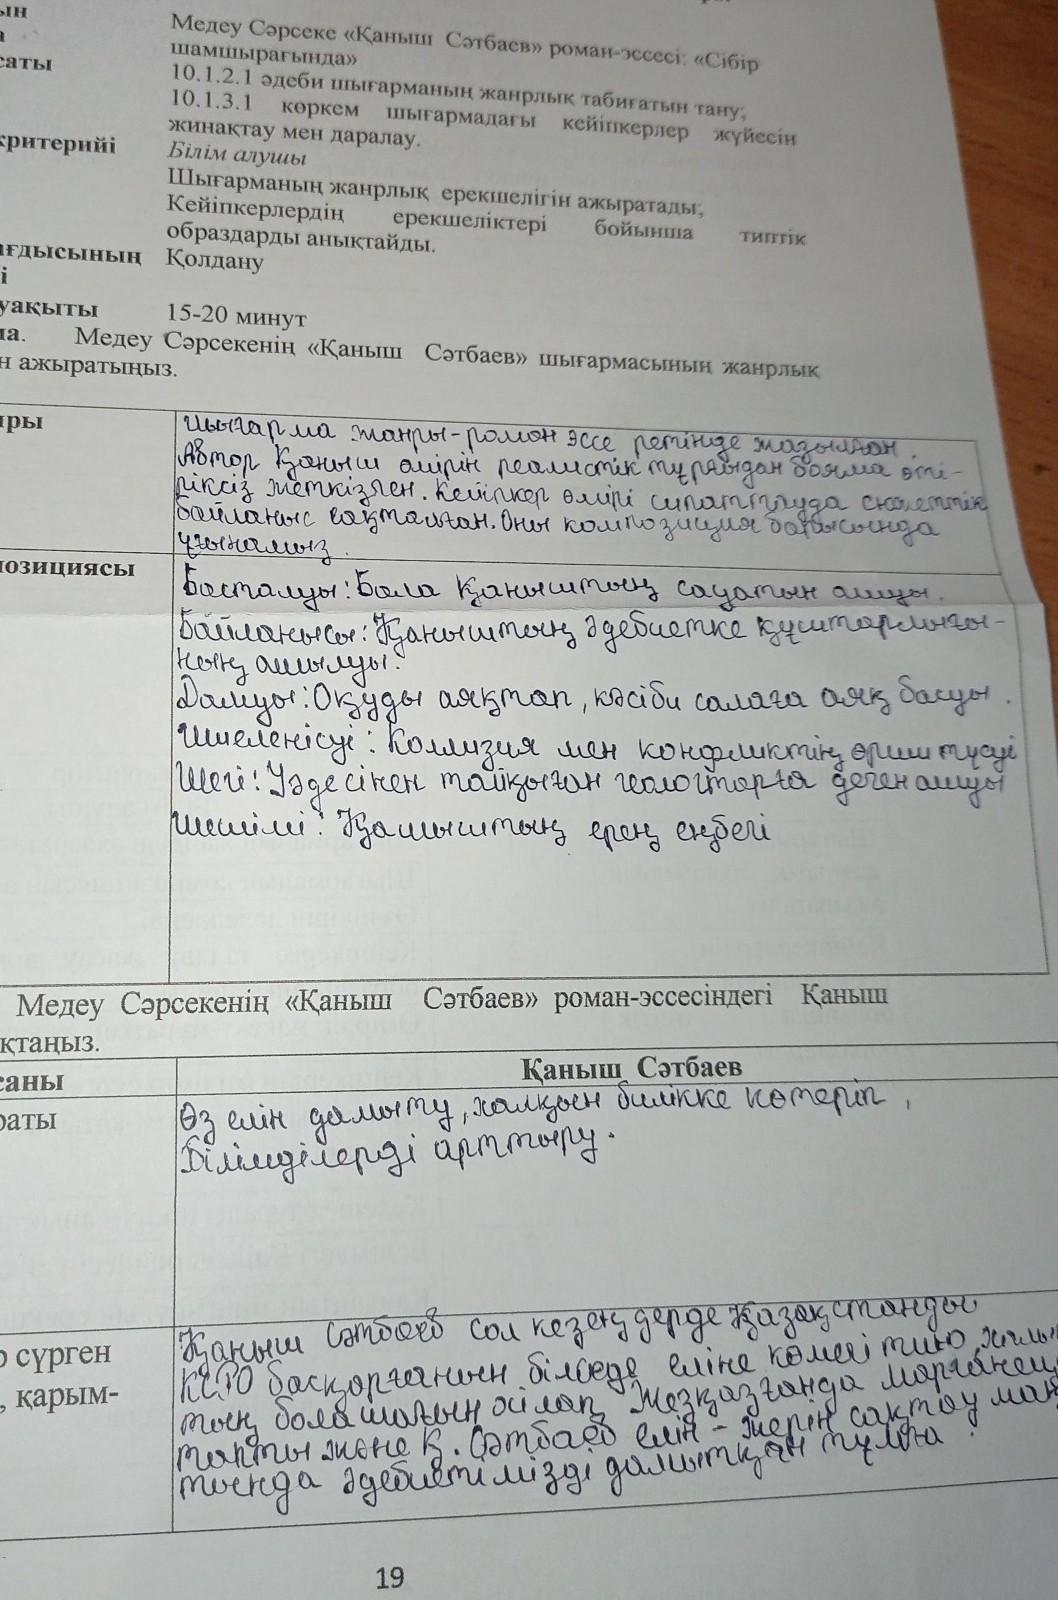 ын
Медеу Сәрсеке «Қаныш Сәтбаев» роман-эссесі: «Сібір
шамшырағында»
саты
10.1.2.1 әдеби шығарманың жанрлық табиғатын тану;
10.1.3.1 көркем шығармадағы кейіпкерлер жүйесін
жинақтау мен даралау.
критерийі
Білім алушы
Шығарманың жанрлық ерекшелігін ажыратады;
Кейіпкерлердің ерекшеліктері бойынша типтік
образдарды анықтайды.
ағдысының Қолдану
і
уақыты 15-20 минут
ма. Медеу Сәрсекенің «Қаныш Сәтбаев» шығармасының жанрлық
н ажыратыңыз.
нры
Шығарма жанры-роман эссе ретінде жазылған.
Автор Қаныш өмірін реалистік тұрғыдан бояма өті-
ріксіз жеткізген. Кейіпкер өмірі сипатталуда сюжеттік
байланыс сақталған. Оны композиция барысында
ұғынамыз.
позициясы
Басталуы: Бала Қаныштың сауатын ашуы.
Байланысы: Қаныштың әдебиетке құштарлығы-
ның ашылуы.
Дамуы: Оқуды аяқтап, кәсіби салаға аяқ басуы.
Шиеленісуі: Коллизия мен конфликтің өршітүсуі
Шегі: Уәдесінен тайқыған геологтарға деген ашуы
Шешімі: Қаныштың ерең еңбегі
Медеу Сәрсекенің «Қаныш Сәтбаев» роман-эссесіндегі Қаныш
қтаңыз.
саны Қаныш Сәтбаев
раты
Өз елін дамыту, халқын билікке көтеріп,
Білімділерді арттыру.
р сүрген
, қарым-
Қаныш Сәтбаев сол кезеңдерде Қазақстанды
КСРО басқарғанын білседе еліне көмегі тиіп,
тың болашағын ойлап Жезқазғанда марганец
тапты және Қ. Сәтбаев елін - жерін сақтау
тында әдебиетімізді дамытқан тұлға.
19